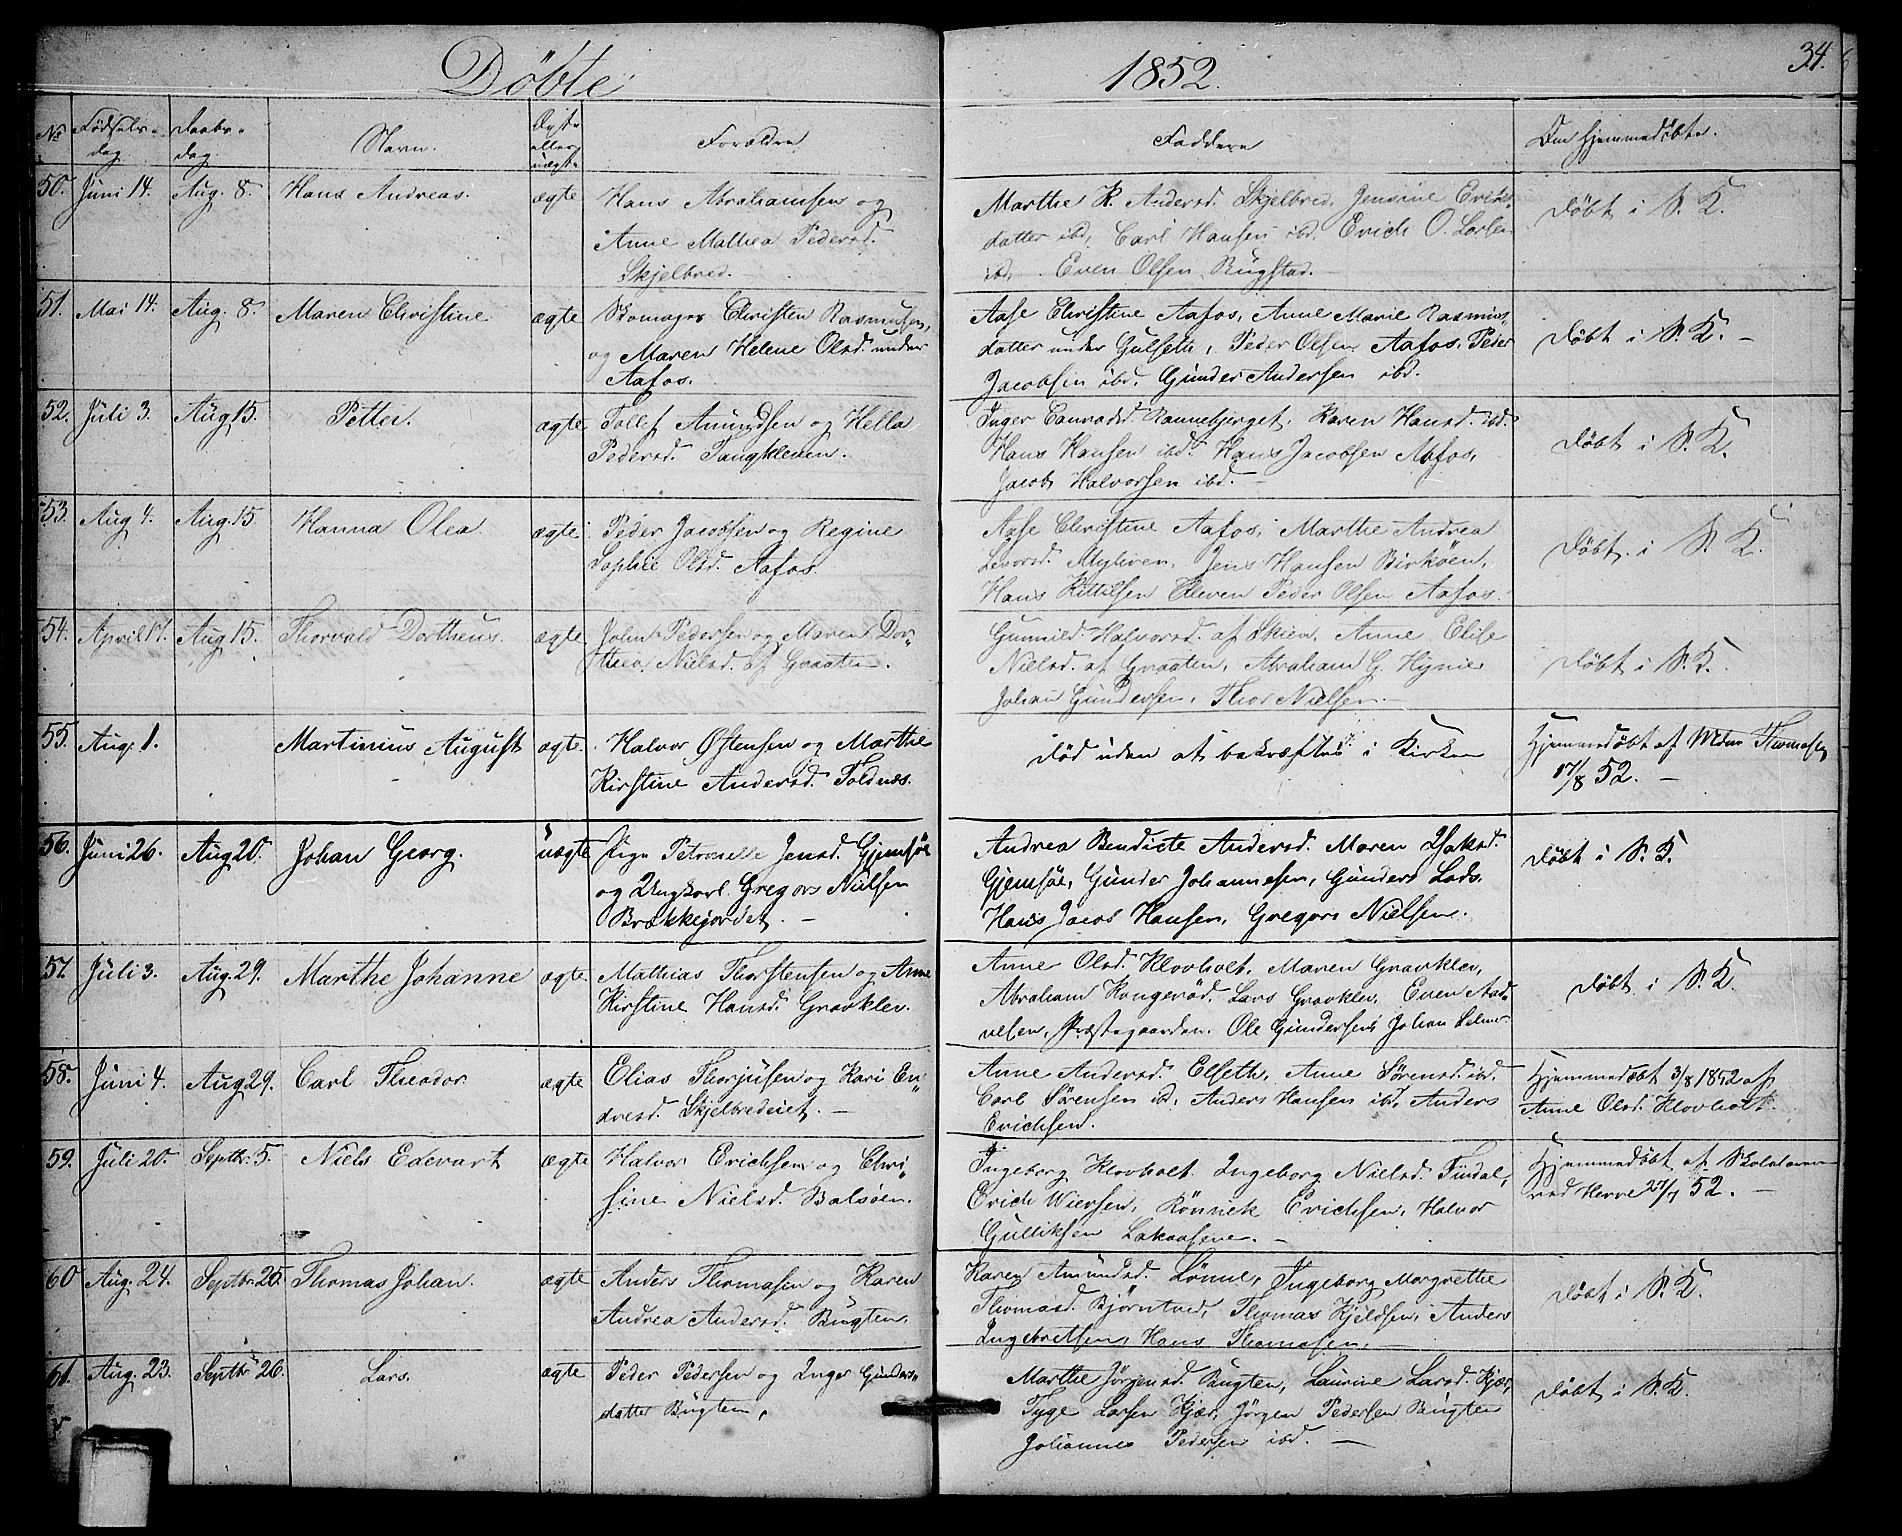 Døbte 1852. 34.
No Fødsels-dag. Daabs-dag. Navn. Ægte eller uægte Forældre Faddere Om Hjemmedøbte.
50. Juni 14. Aug. 8. Hans Andreas. ægte Hans Abrahamsen og
Anne Mathea Pedersd.
Skjelbred.
Marthe K. Andersd. Skjelbred, Jensine Erichs-
datter ibd, Carl Hansen ibd. Erich O. Larsen
ibd. Even Olsen Bugstad.
Døbt i S. K.
51. Mai 14. Aug. 8. Maren Christine ægte Skomager Christen Rasmusen,
og Maren Helene Olsd. under
Aafos.
Aase Christine Aafos, Anne Marie Rasmus-
datter under Gulseth, Peder Olsen Aafos, Peder
Jacobsen ibd. Gunder Andersen ibd.
Døbt i S. K. -
52. Juli 3. Aug 15. Petter. ægte Tollef Amundsen og Hella
Pedersd. Tangkleven.
Inger Conradsd. Rannebjerget. Karen Hansd. ibd.
Hans Hansen ibd. Hans Jacobsen Aafos,
Jacob Halvorsen ibd. -
Døbt i S. K.
53. Aug 4. Aug. 15 Hanna Olea ægte Peder Jacobsen og Regine
Sophie Olsd. Aafos.
Aase Christine Aafos, Marthe Andrea
Levorsd. Myhven, Jens Hansen Birköen,
Hans Kittilsen Cleven Peder Olsen Aafos.
Døbt i S. K.
54. April 17. Aug 15. Thorvald Dortheus. ægte John Pedersen og Maren Dor-
thea Nielsd. af Graaten.
Gunnild Halvorsd. af Skien, Anne Elise
Nielsd. af Graaten, Abraham G. Hynie
Johan Gundersen, Thor Nielsen
Døbt i S. K.
55. Aug. 1. Martinius August ægte Halvor Østensen og Marthe
Kirstine Andersd. Foldnæs.
Død uden at bekræftes i Kirken
Hjemmedøbt af Mdm Thomasen
17/8 52. -
56. Juni 26. Aug 20. Johan Georg. uægte Pige Petronelle Jensd. Gjemsøe
og Ungkarl Gregors Nielsen
Brækkejordet. -
Andrea Bendicte Andersd. Maren Isaksd.
Gjemsøe, Gunder Johannesen, Gunders Lads.
Hans Jacob Hansen, Gregors Nielsen.
Døbt i S. K.
57. Juli 3. Aug. 29. Marthe Johanne ægte Mathias Thorstensen og Anne
Kirstine Hansd. Gravklev.
Anne Olsd. Klovholt, Maren Gravklev,
Abraham Kongerød. Lars Gravklev. Even Aad-
nesen, Præstegaarden. Ole Gundersen Johan
Døbt i S. K.
58. Juni 4. Aug 29. Carl Theodor ægte Elias Thorjusen og Kari En-
dresd. Skjelbredeiet. -
Anne Andersd. Elseth, Anne Sörensd. ibd.
Carl Sörensen ibd, Anders Hansen ibd, Anders
Erichsen.
Hjemmedøbt 3/8 1852 af
Anne Olsd. Klovholt.
59. Juli 20. Septbr. 5. Niels Edevart ægte Halvor Erichsen og Chri-
stine Nielsd. Balsöen.
Ingeborg Klovholt. Ingeborg Nielsd. Findal,
Erich Wiersen, Rönnik Erichsen, Halvor
Gulliksen Lakaasene. -
Hjemmedøbt af Skolelærer
ved Herre 27/7 52. -
60 Aug. 24. Septbr. 25. Thomas Johan. ægte Anders Thomasen og Karen
Andrea Andersd. Bugten.
Karen Amundsd. Lönne, Ingeborg Margrethe
Thomasd. Björntvedt, Thomas Kjeldsen, Anders
Ingebretsen, Hans Thomasen. -
Døbt i S. K.
61. Aug. 23. Septbr. 26. Lars. ægte Peder Pedersen og Inger Gunders-
datter Bugten,
Marthe Jörgensd. Bugten, Laurine Larsd. Kjær,
Tyge Larsen Kjær, Jörgen Pedersen Bugten
Johannes Pedersen ibd. -
Døbt i S. K.